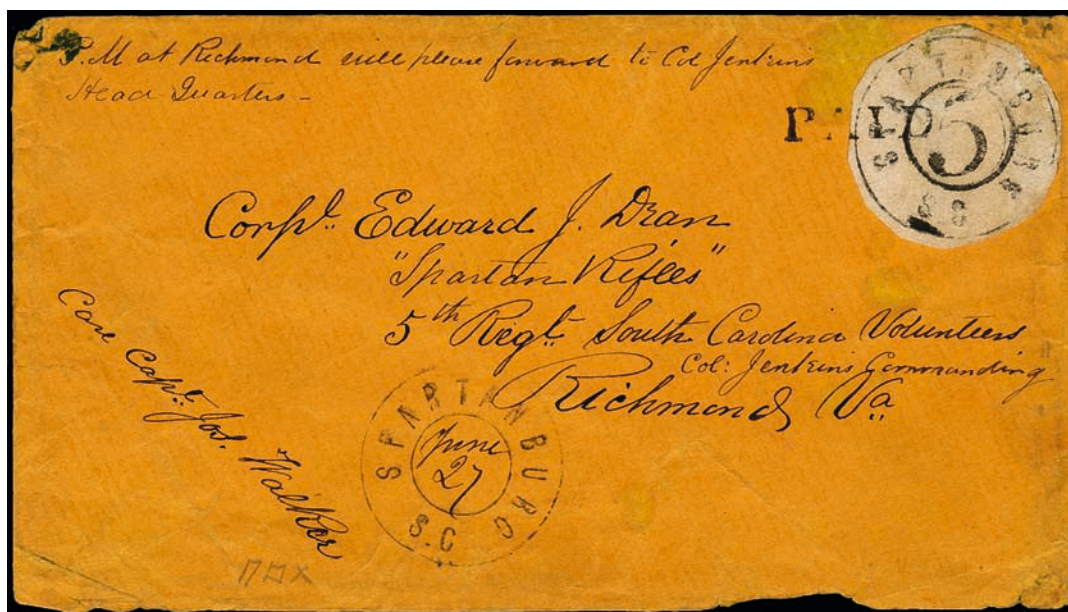 P.M at Richmond will please forward to Col Jenkins
Head Quarters -
PAID
SPARTANBURG
5
SC
Corpl. Edward J. Dean
"Spartan Rifles"
5th Regt. South Carolina Volunteers
Col: Jenkins Commanding
Richmond Va
Care Capt. Jos. Walker
SPARTANBURG
June
27
S.C